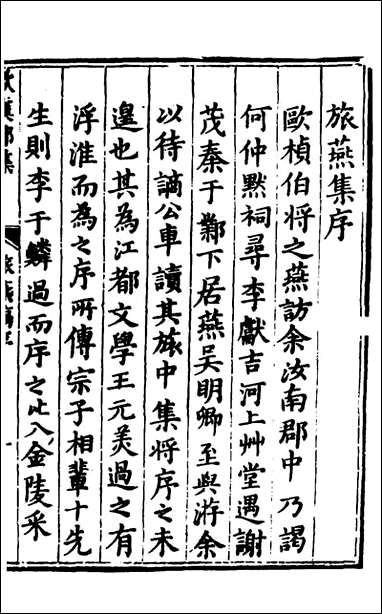 旅燕集序
歐楨伯将之燕訪余汝南郡中乃謁
何仲默祠尋李獻吉河上艸堂遇謝
茂秦于鄴下居燕吴明卿至與游余
以待謫公車讀其旅中集将序之未
遑也其為江都文學王元美過之有
浮淮而為之序所傳宗子相輩十先
生則李于鱗過而序之北入金陵采